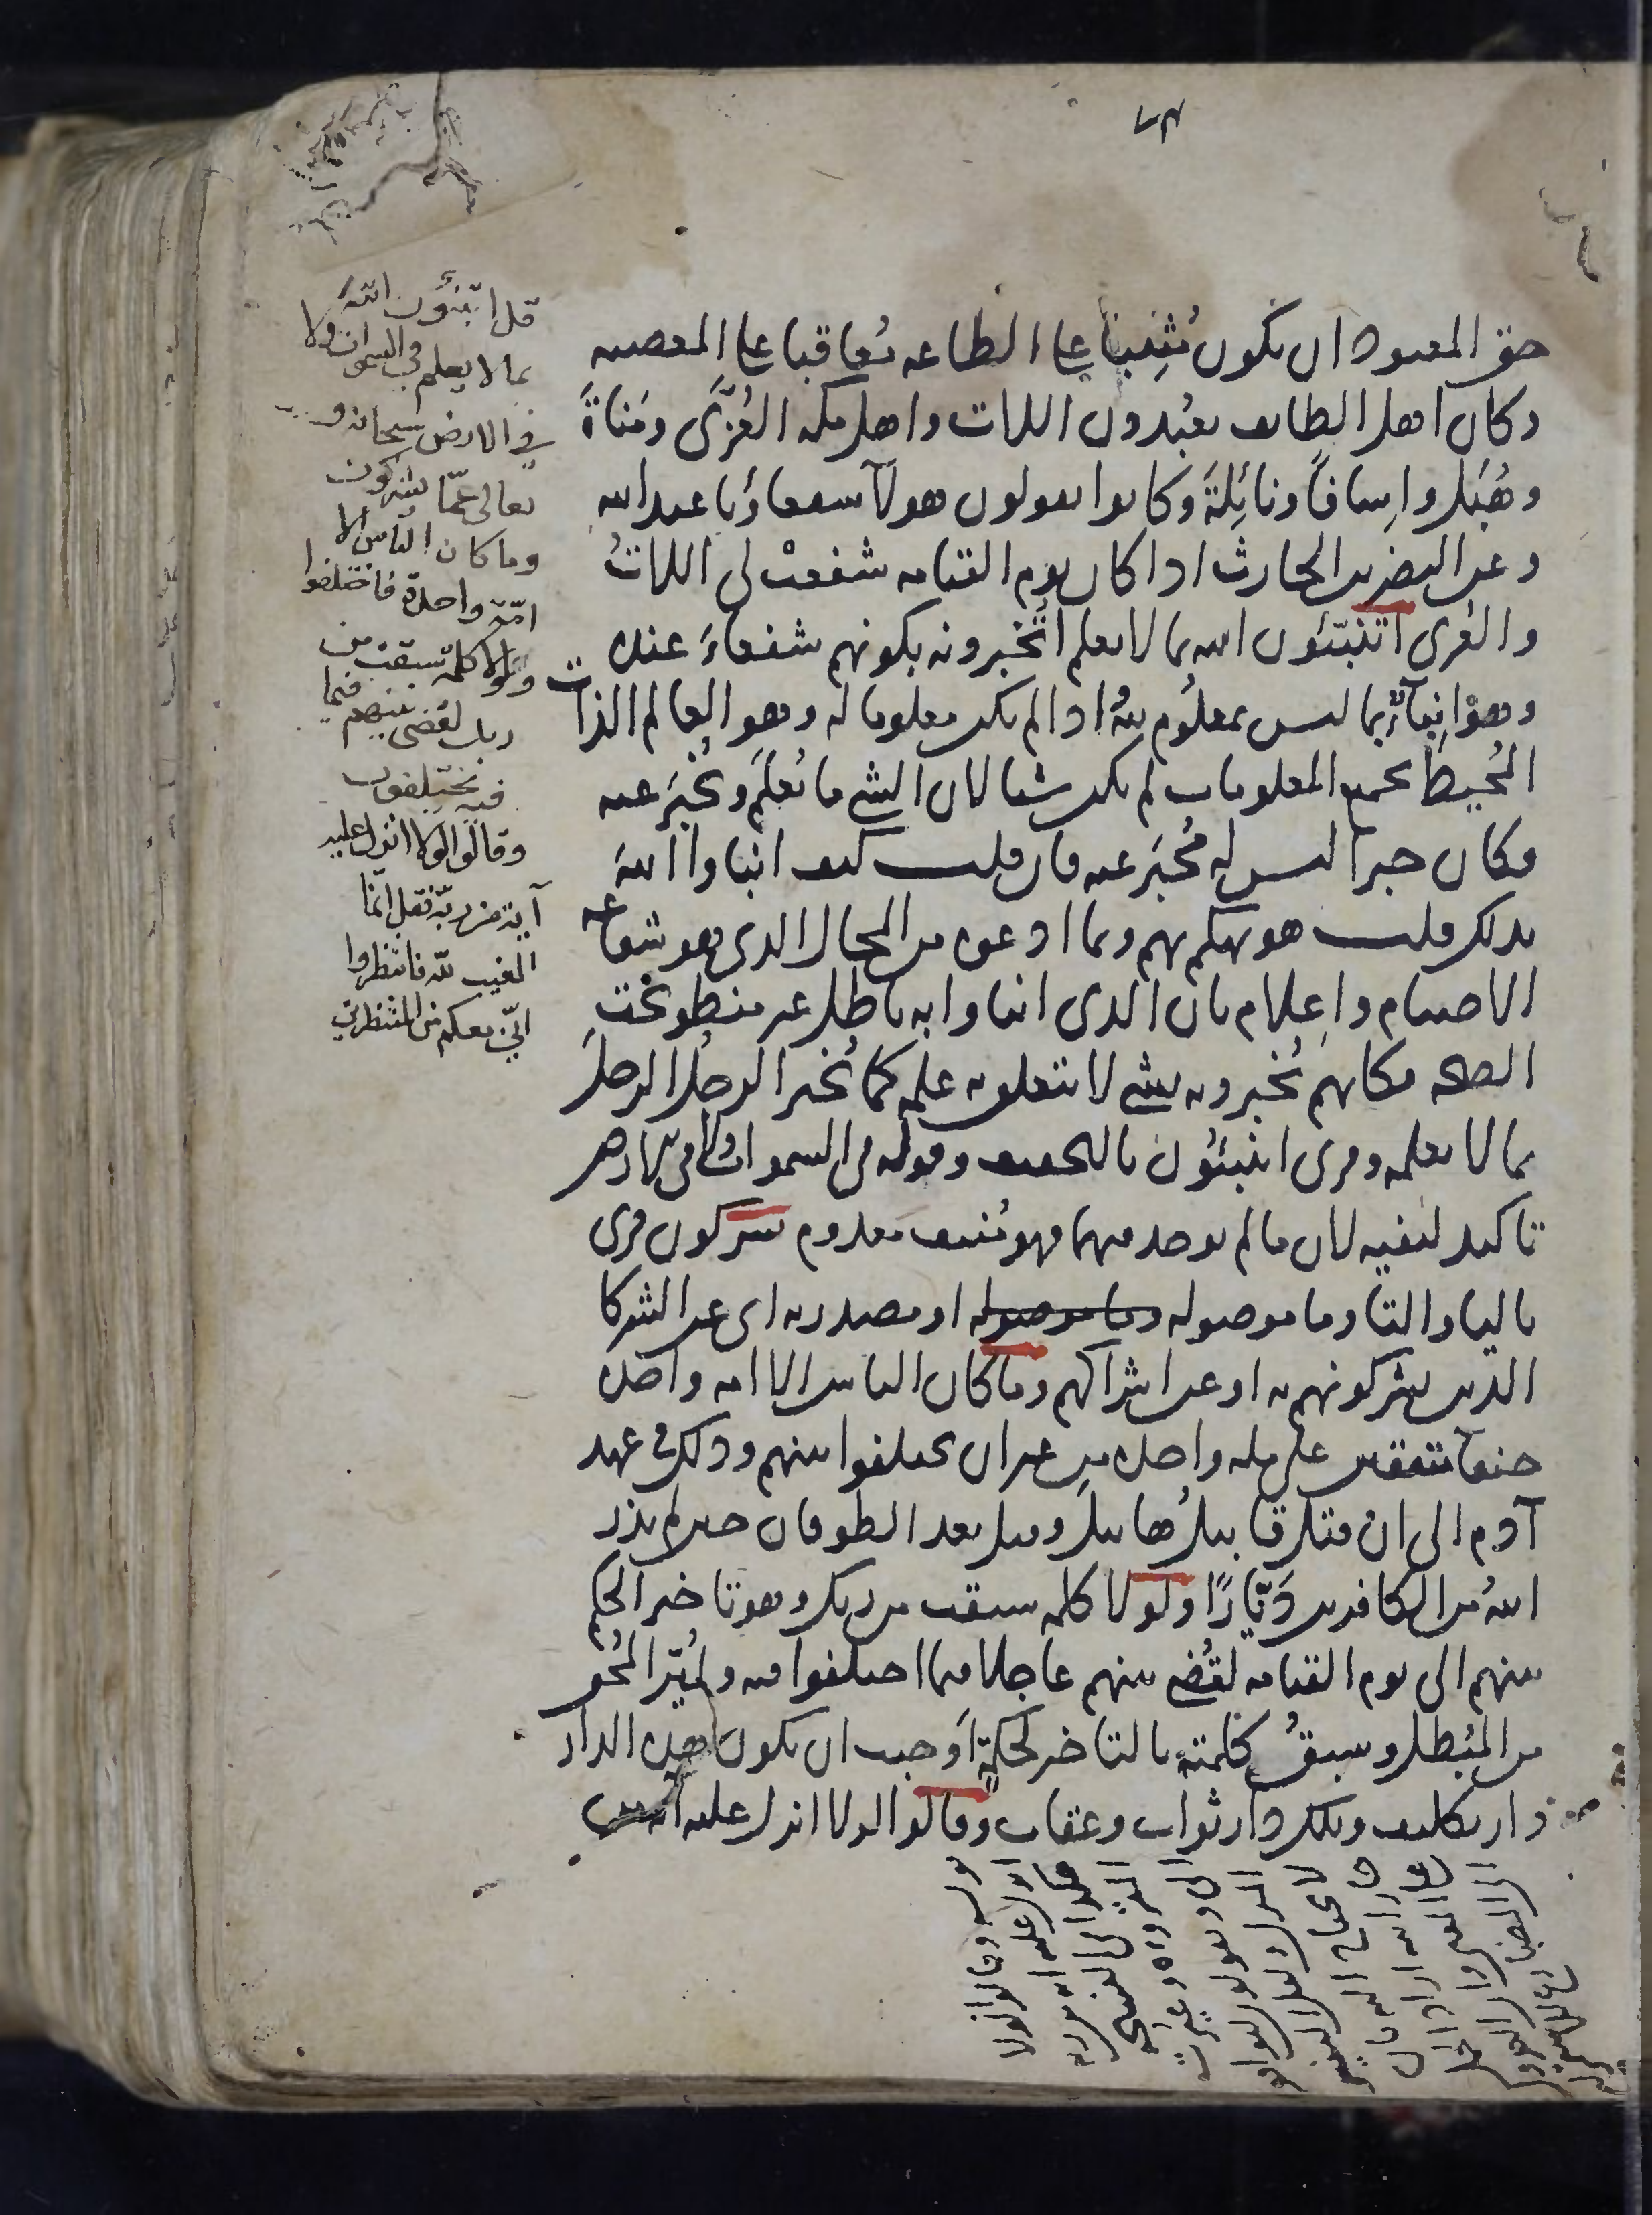 ٧٣
حق المعبود ان يكون مُثيبا على الطاعه مُعاقبا على المعصيه
وكان اهل الطايف يعبُدون اللات واهل مكه العُزّى ومَناةَ
وهُبَل واِسافًا ونائِلةَ وكانوا يقولون هولآ شفعاؤنا عند الله
وعن النضر بن الحارث اذا كان يوم القيامه شفعتْ لى اللاتُ
والعُزى اتنبّئون الله بما لا يعلم أتُخبرونه بكونهم شفعاءَ عنده
وهوْ انِبآءٌ بما ليس بمعلُوم للهُ اذا لم يكن معلوما له وهو العالم الذات
المُحيطُ بجميع المعلومات لم يكن شيا لان الشى ما يُعلَم ويُخبَر عنه
فكان خبرا ليس له مُخبَر عنه فان قلت كيف انباوا اللهَ
بذلك قلت هو تهكم بهم وبما ادعوه من المحال الذى هو شفاعه
الاصنام واِعلام بان الذى انباوا به باطل غير منطو تحت
الصحه فكانهم يُخبرونه بشى لا يتعلق به علمه كما يُخبر الرجلُ الرجلَ
بما لا يعلمه وقرى اتنبئُون بالتخفيف وقوله فى السموات ولا فى الارض
تاكيد لنفيه لان ما لم يوجد فيهما فهو مُنتف معدوم يشركون قرى
باليا والتا وما موصوله وما موصوله او مصدريه اى عن الشركا
الذين يشركونهم به او عن اشراكهم وما كان الناس الا امه واحده
حنفا متفقين على مله واحده من غير ان يختلفوا بينهم وذلك فى عهد
آدم الى ان قتل قابيلُ هابيل وقيل بعد الطوفان حين لم يذر
اللهُ من الكافرين دَيّارًا ولولا كلمه سبقت من ربك وهو تاخير الحكم
بينهم الى يوم القيامه لقُضى بينهم عاجلا فيما اختلفوا فيه ولمُيّز المُحق
من المُبطل وسبقُ كلمته بالتاخير لحكمةٍ اوجبت ان يكون هذه الدار
دار تكليف وتلك دار ثواب وعقاب وقالوا لولا انزل عليه آيه من
قل اتنبّؤن الله
بما لا يعلم فى السموات ولا
فى الارض سبحانه و
تعالى عمّا يشركون
وما كان الناس الا
امّة واحدة فاختلفوا
ولولا كلمة سبقت من
ربك لقضى بينهم فيما
فيه يختلفون
وقالوا لولا انزل عليه
آية من ربّه فقل انّما
الغيب للّه فانتظروا
انّى معكم من المنتظرين
وقالوا لولا
انزل عليه ايه من ربه